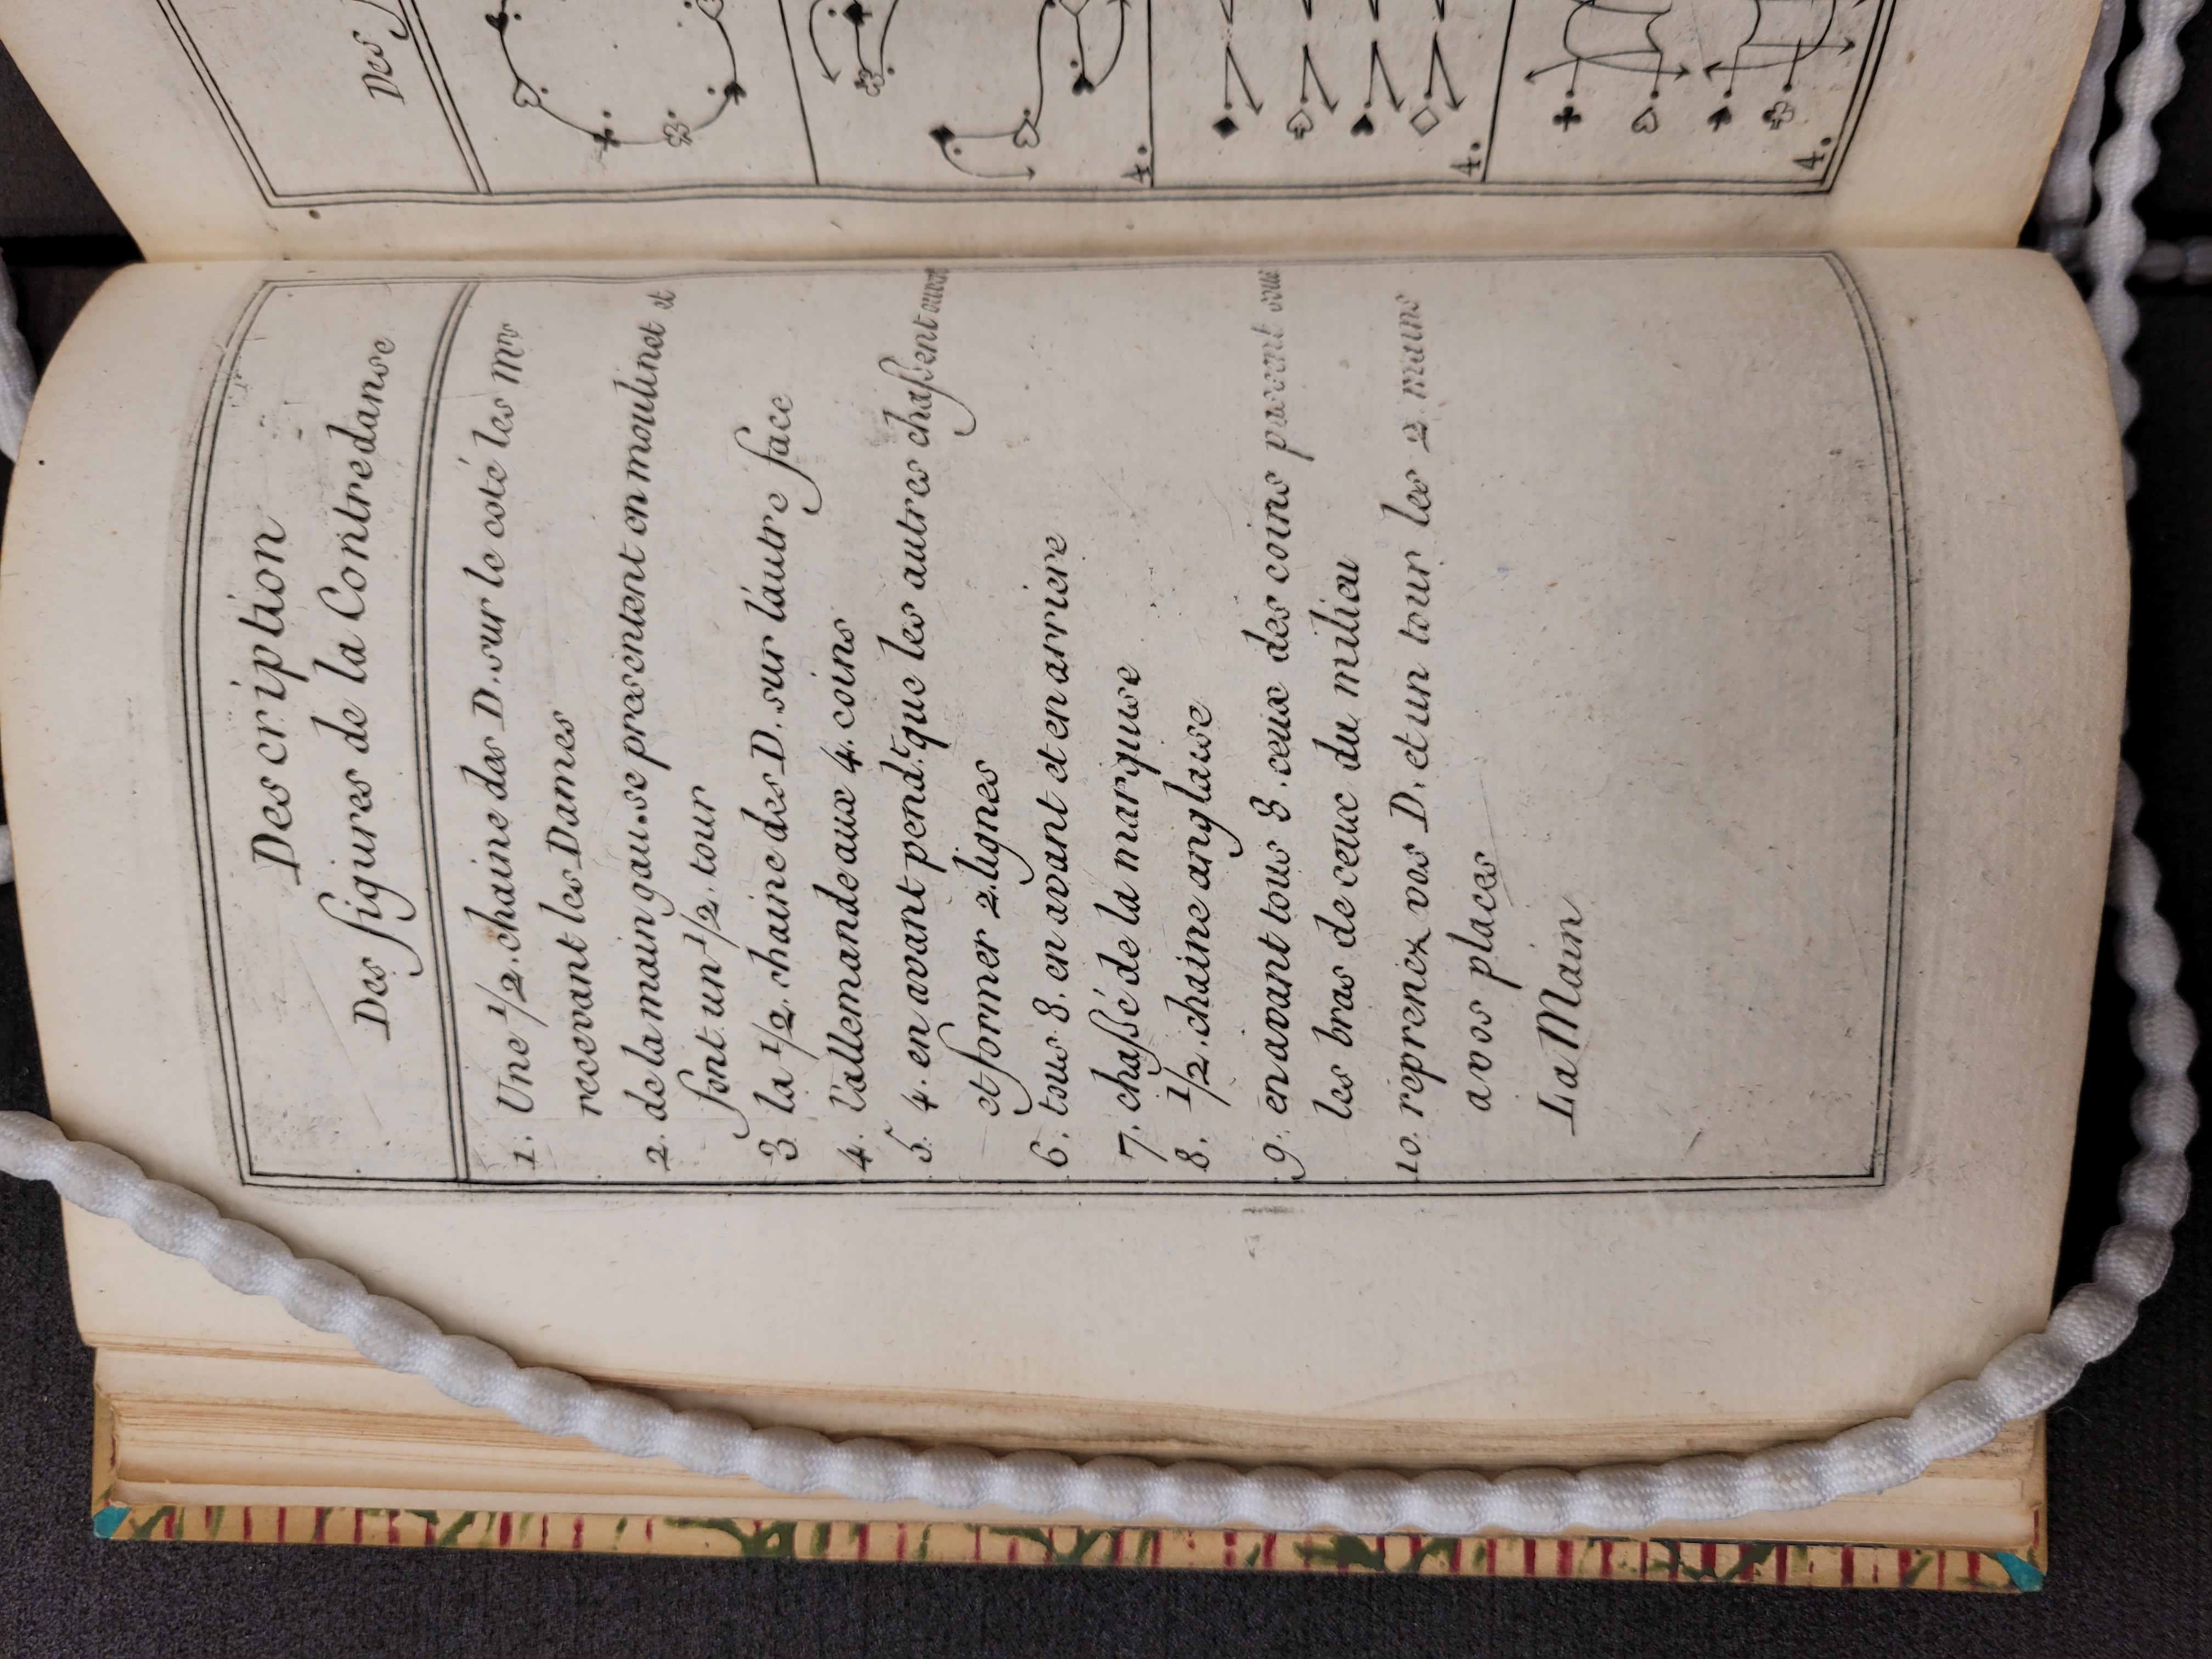 Description
Des figures de la Contredanse
1. Une 1/2. chaine des D. sur le coté les Mrs
recevant les Dames
2. de la main gau. se presentent en moulinet et
font un 1/2. tour
3. la 1/2. chaine des D. sur l'autre face
4. l'allemande aux 4. coins
5. 4. en avant pendt. que les autres chaßent
et former 2. lignes
6. tous 8. en avant et en arriere
7. chaßé de la marquise
8. 1/2. chaine anglaise
9. en avant tous 8. ceux des coins passent sous
les bras de ceux du milieu
10. reprenez vos D. et un tour les 2. mains
a vos places
La Main
Des
4.
4.
4.